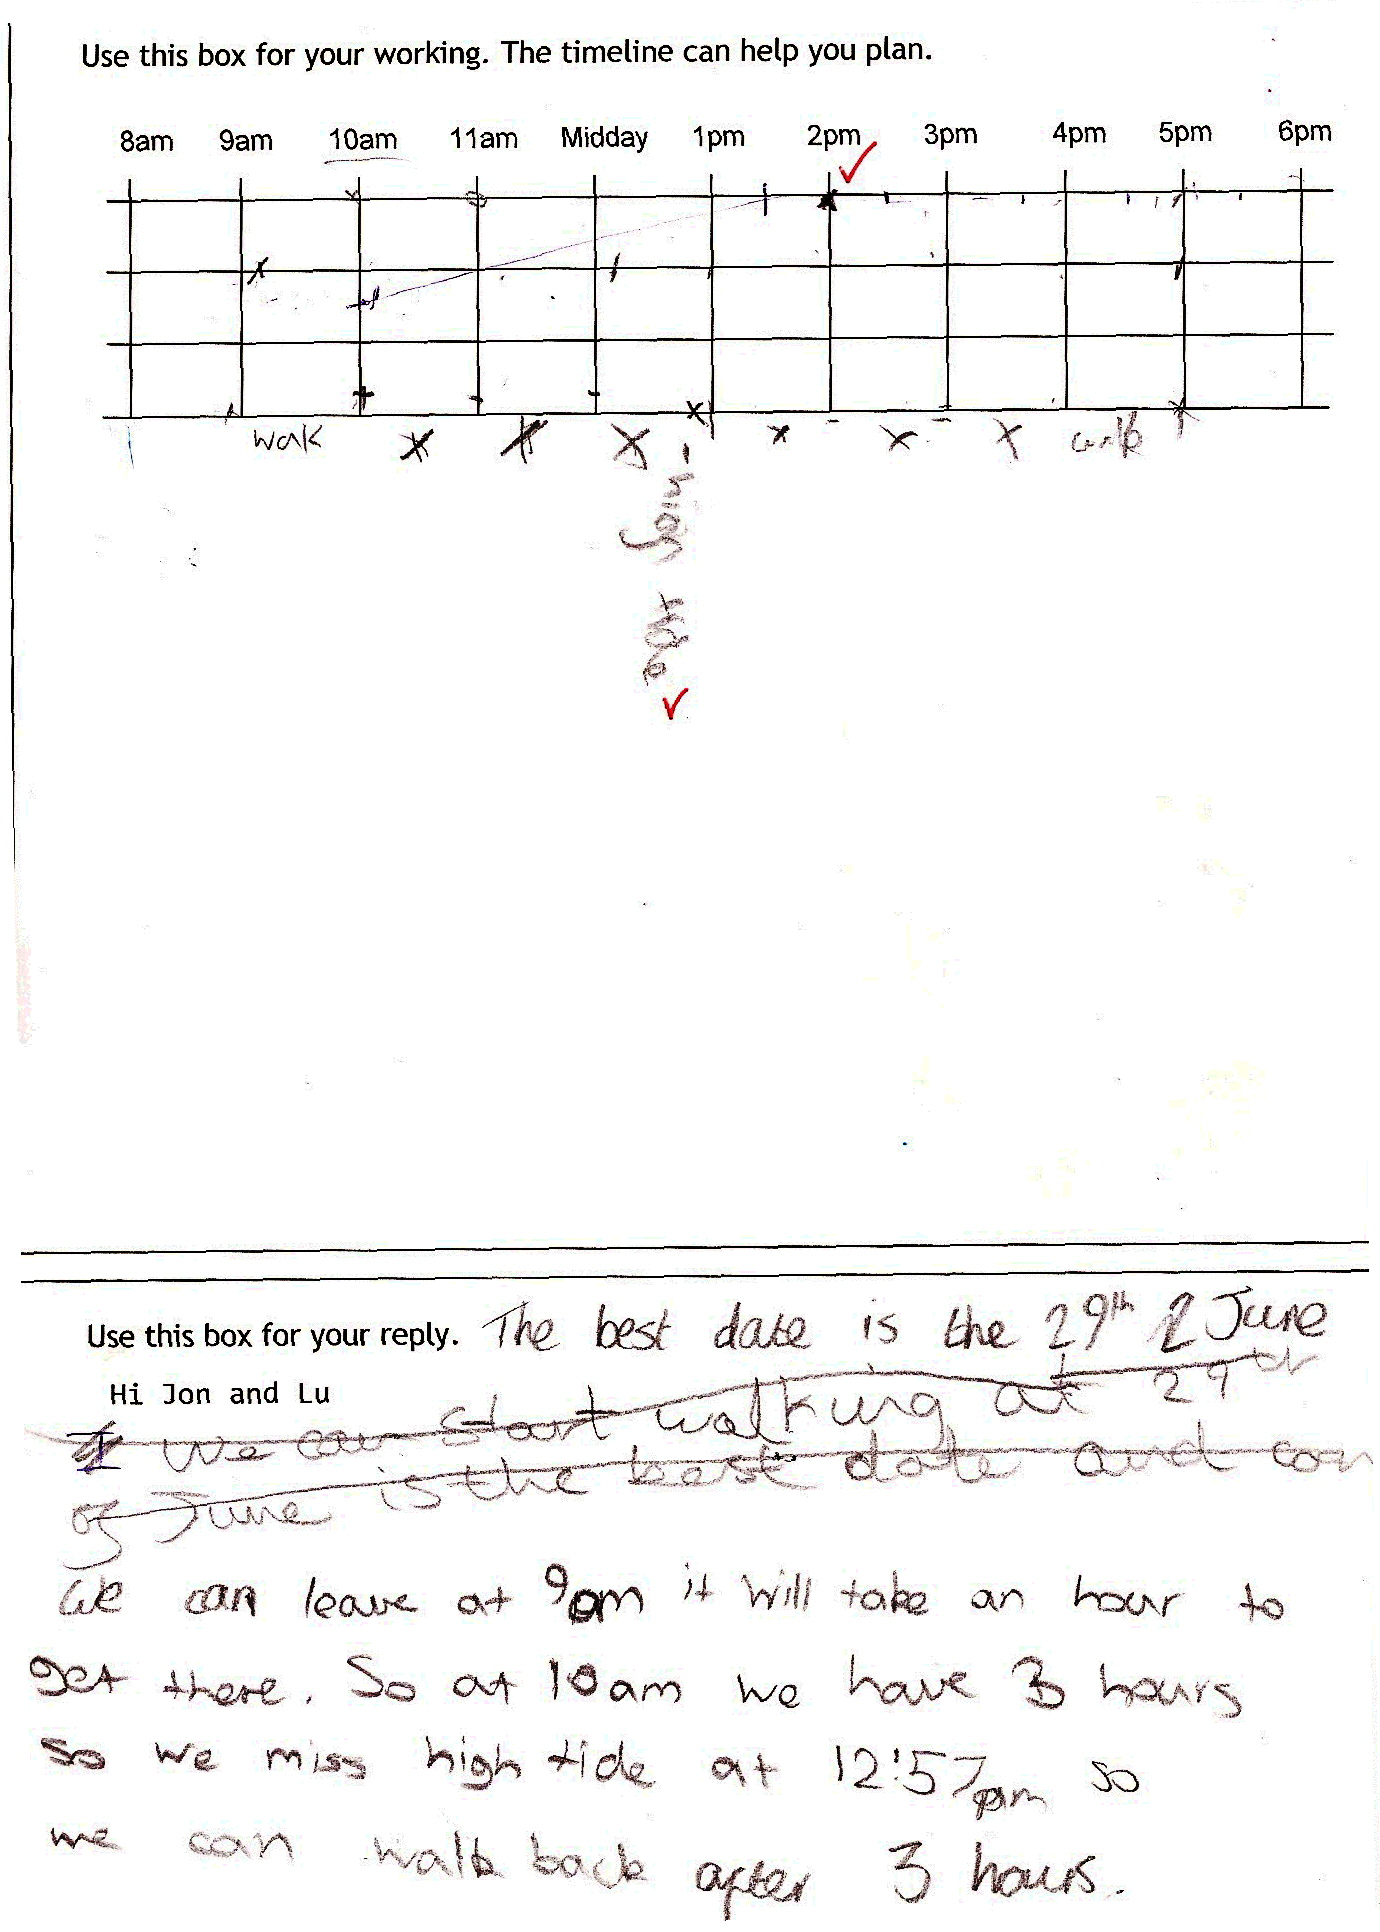 Use this box for your working. The timeline can help you plan.
8am 9am 10am 11am Midday 1pm 2pm 3pm 4pm 5pm 6pm
wak walk
high
tide
Use this box for your reply. The best date is the 29th June
Hi Jon and Lu
We can start walking at 29th
of June is the best date and can
We can leave at 9am it will take an hour to
get there. So at 10am we have 3 hours
so we miss high tide at 12:57pm so
we can walk back after 3 hours.